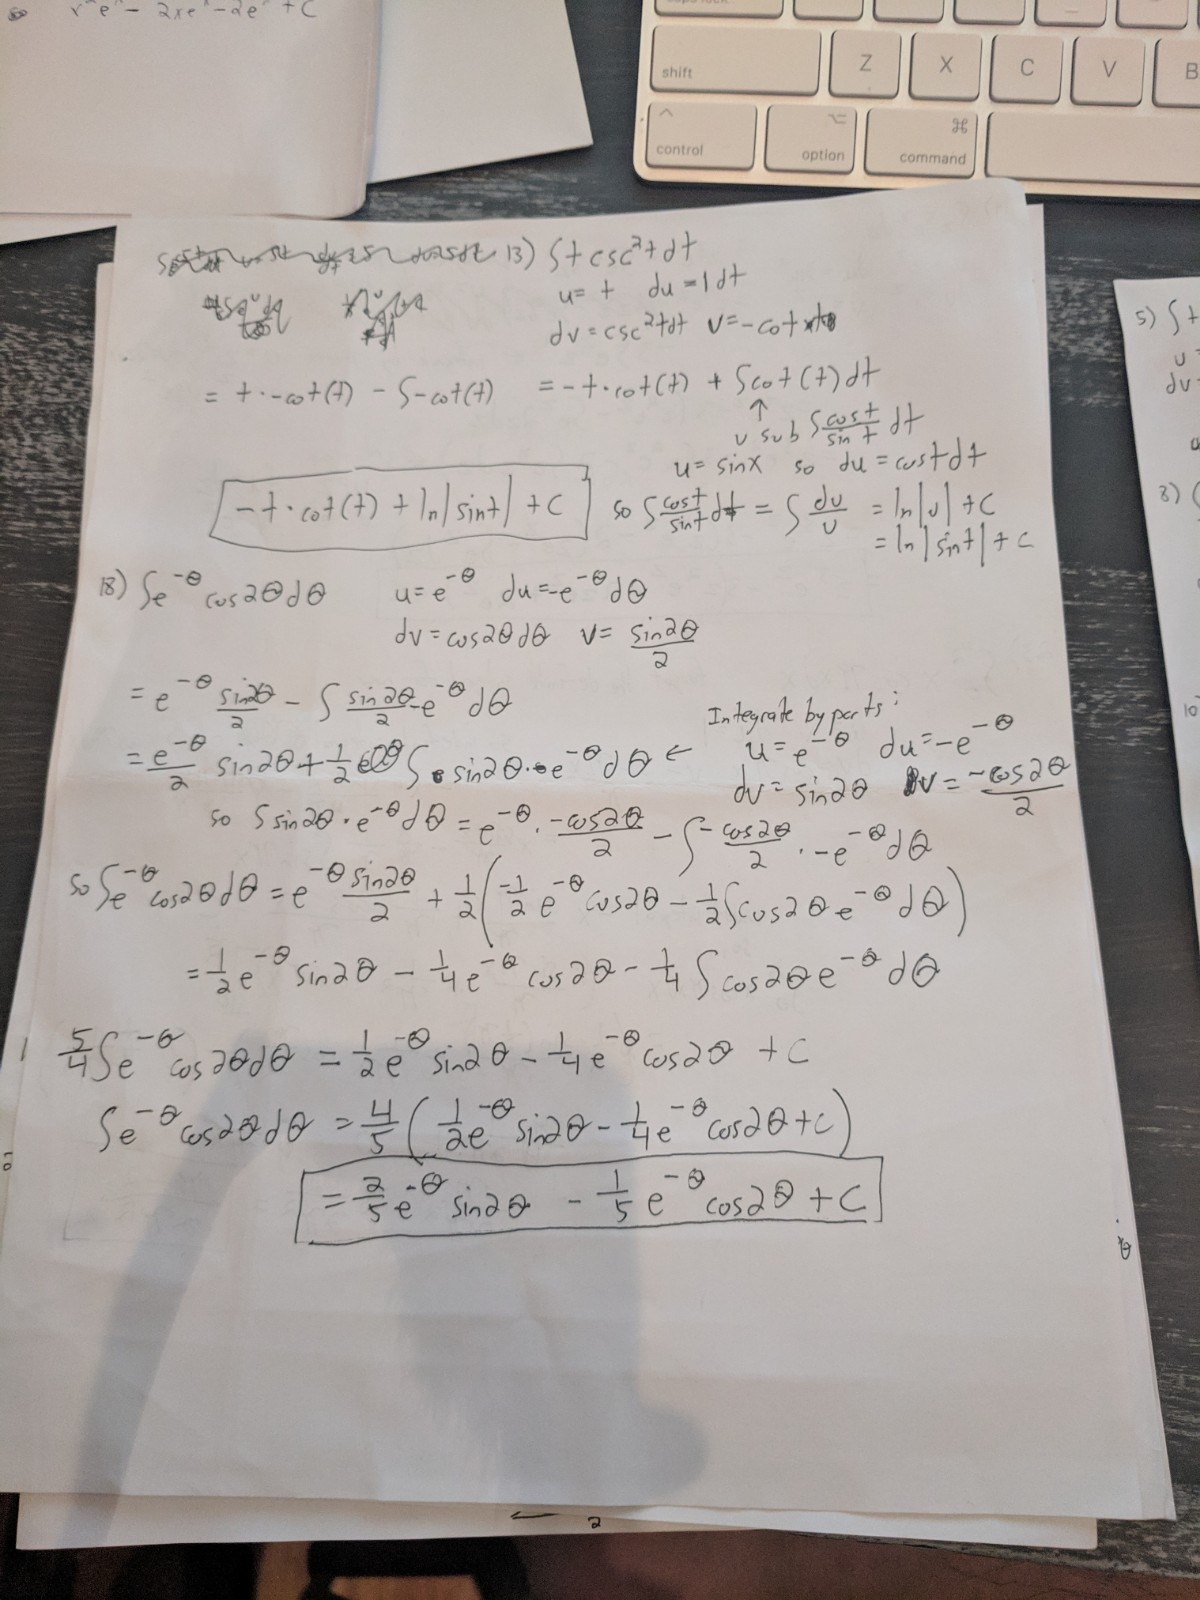 x²eˣ - 2xeˣ - 2eˣ + C
shift Z X C V B
control option command
⌘
13) ∫t csc²t dt
u = t du = 1dt
dv = csc²t dt v = -cot
= t·-cot(t) - ∫-cot(t) = -t·cot(t) + ∫cot(t)dt
↑
u sub ∫ cos t / sin t dt
u = sinx so du = cost dt
-t·cot(t) + ln|sint| + C so ∫ cost / sint dt = ∫ du/u = ln|u| + C
= ln|sint| + C
18) ∫e^-θ cos2θdθ u = e^-θ du = -e^-θ dθ
dv = cos2θdθ v = sin2θ / 2
= e^-θ sin2θ / 2 - ∫ sin2θ / 2 · -e^-θ dθ
Integrate by parts:
= e^-θ / 2 sin2θ + 1/2 ∫ sin2θ · e^-θ dθ ← u = e^-θ du = -e^-θ
dv = sin2θ v = -cos2θ / 2
so ∫sin2θ · e^-θ dθ = e^-θ · -cos2θ / 2 - ∫ -cos2θ / 2 · -e^-θ dθ
so ∫e^-θ cos2θdθ = e^-θ sin2θ / 2 + 1/2 (-1/2 e^-θ cos2θ - 1/2 ∫cos2θ e^-θ dθ)
= 1/2 e^-θ sin2θ - 1/4 e^-θ cos2θ - 1/4 ∫ cos2θ e^-θ dθ
5/4 ∫e^-θ cos2θdθ = 1/2 e^-θ sin2θ - 1/4 e^-θ cos2θ + C
∫e^-θ cos2θdθ = 4/5 (1/2 e^-θ sin2θ - 1/4 e^-θ cos2θ + C)
= 2/5 e^-θ sin2θ - 1/5 e^-θ cos2θ + C
5) ∫t
u =
dv
8)
10
2